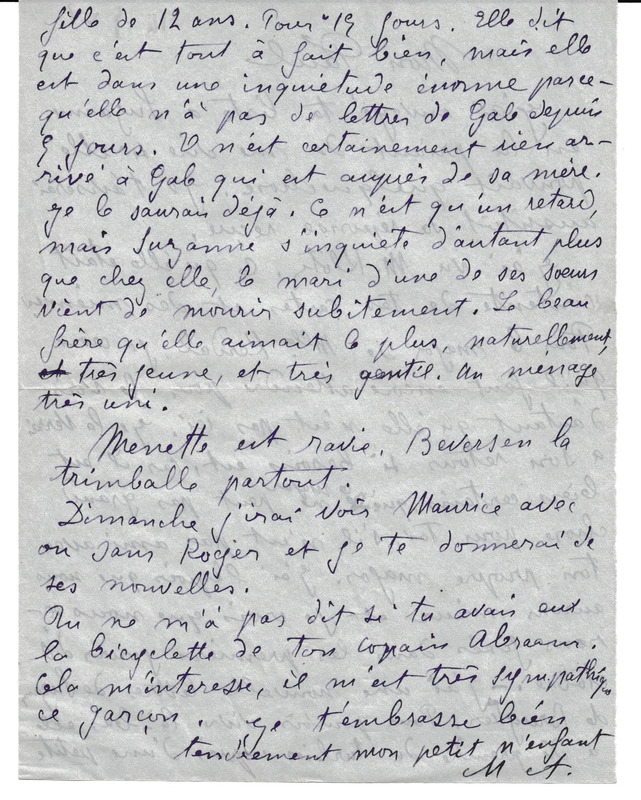 fille de 12 ans. Pour 15 jours. Elle dit
que c'est tout à fait bien, mais elle
est dans une inquiétude énorme parce-
qu'elle n'à pas de lettres de Gab depuis
5 jours. Il n'est certainement rien ar-
rivé à Gab qui est auprès de sa mère.
Je le saurais déjà. Ce n'est qu'un retard,
mais Suzanne s'inquiète d'autant plus
que chez elle, le mari d'une de ses soeurs
vient de mourir subitement. Le beau
frère qu'elle aimait le plus, naturellement,
et très jeune, et très gentil. Un ménage
très uni.
Menette est ravie. Beversen la
trimballe partout.
Dimanche j'irai voir Maurice avec
ou sans Roger et je te donnerai de
ses nouvelles.
Tu ne m'à pas dit si tu avais eux
la bicyclette de ton copain Abraam.
Cela m'interesse, il m'est très sympathique
ce garçon. Je t'embrasse bien
tendrement mon petit n'enfant
M A.